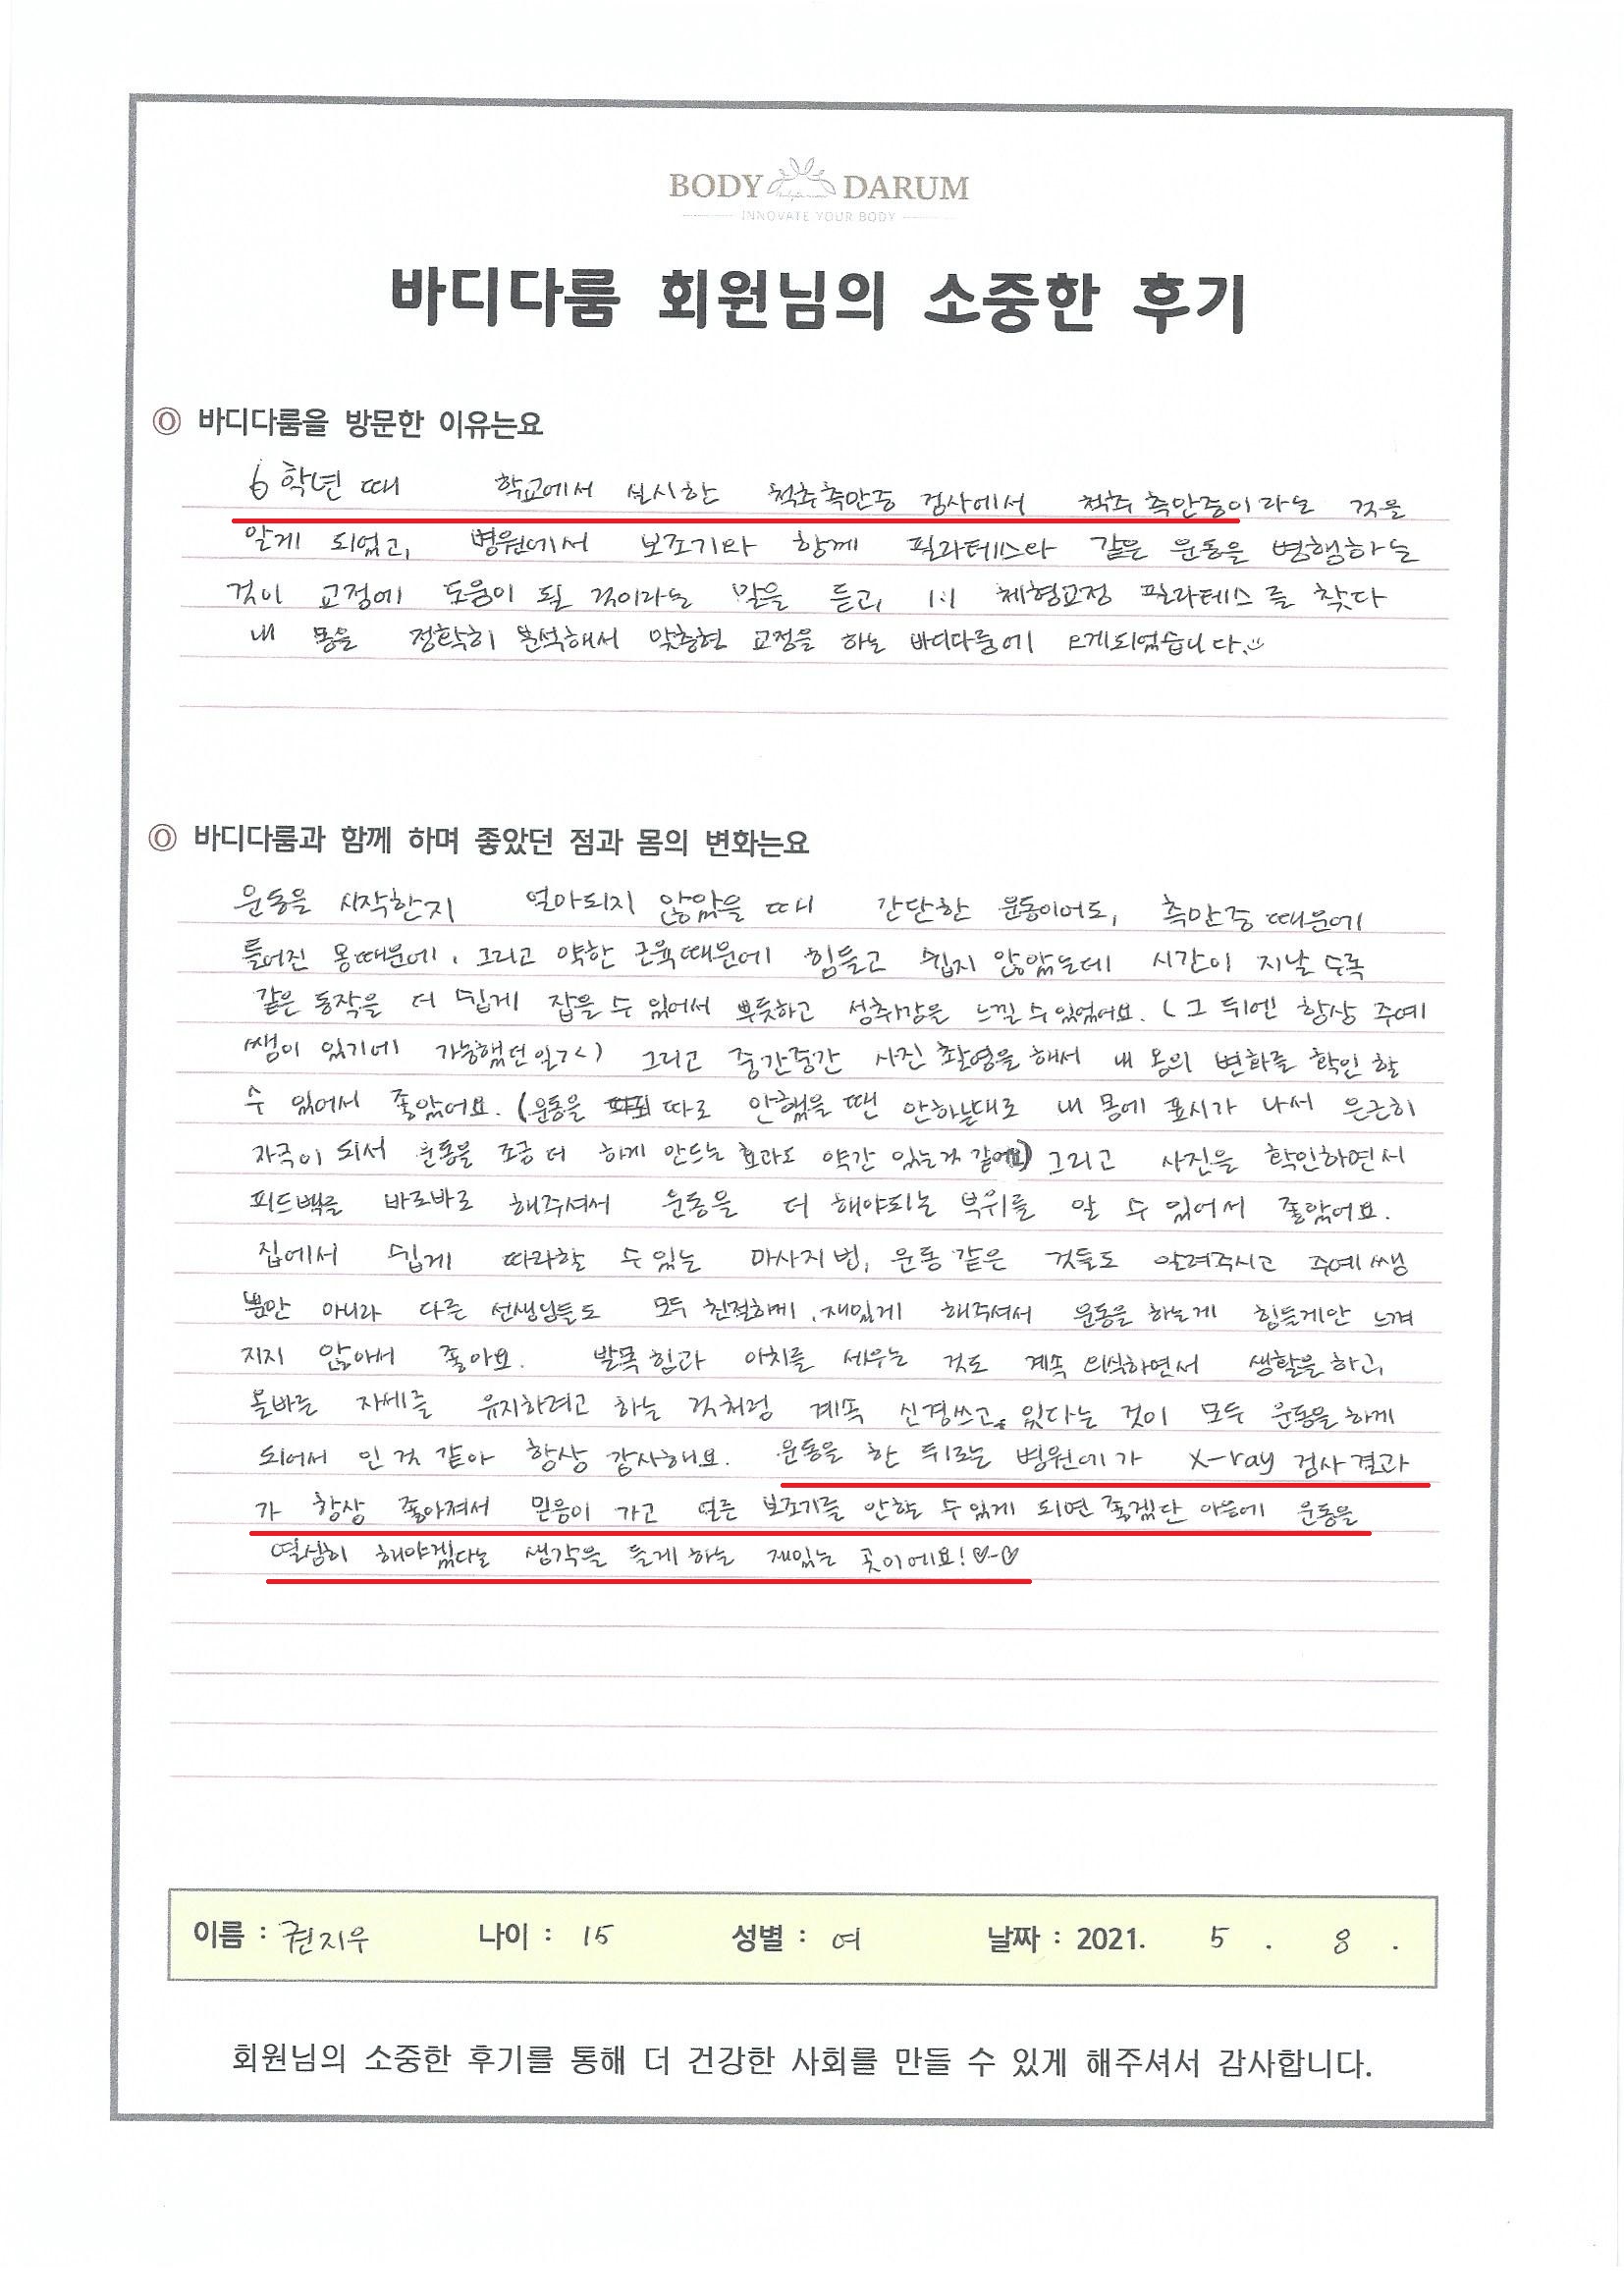 BODY DARUM
INNOVATE YOUR BODY
바디다룸 회원님의 소중한 후기
바디다룸을 방문한 이유는요
6학년 때 학교에서 실시한 척추측만증 검사에서 척추 측만증이라는 것을
알게 되었고, 병원에서 보조기와 함께 필라테스와 같은 운동을 병행하는
것이 교정에 도움이 될 것이라는 말을 듣고, 1:1 체형교정 필라테스를 찾다
내 몸을 정확히 분석해서 맞춤형 교정을 하는 바디다룸에 오게되었습니다.
바디다룸과 함께 하며 좋았던 점과 몸의 변화는요
운동을 시작한지 얼마되지 않았을 때 간단한 운동이어도, 측만증 때문에
틀어진 몸때문에, 그리고 약한 근육때문에 힘들고 쉽지 않았는데 시간이 지날 수록
같은 동작을 더 쉽게 잡을 수 있어서 뿌듯하고 성취감을 느낄 수 있었어요. (그 뒤엔 항상 주예
쌤이 있기에 가능했던 일><) 그리고 중간중간 사진 촬영을 해서 내 몸의 변화를 확인 할
수 있어서 좋았어요. (운동을 따로 안했을 땐 안하는대로 내 몸에 표시가 나서 은근히
자극이 되서 운동을 조금 더 하게 만드는 효과도 약간 있는거 같아요) 그리고 사진을 확인하면서
피드백을 바로바로 해주셔서 운동을 더 해야되는 부위를 알 수 있어서 좋았어요.
집에서 쉽게 따라할 수 있는 마사지 법, 운동 같은 것들도 알려주시고 주예쌤
뿐만 아니라 다른 선생님들도 모두 친절하게, 재밌게 해주셔서 운동을 하는게 힘들게만 느껴
지지 않아서 좋아요. 발목 힘과 아치를 세우는 것도 계속 의식하면서 생활을 하고,
올바른 자세를 유지하려고 하는 것처럼 계속 신경쓰고 있다는 것이 모두 운동을 하게
되어서 인 것 같아 항상 감사해요. 운동을 한 뒤로는 병원에 가 X-ray 검사 결과
가 항상 좋아져서 믿음이 가고 얼른 보조기를 안할 수 있게 되면 좋겠단 마음에 운동을
열심히 해야겠다는 생각을 들게 하는 재밌는 곳이에요! ♡-♡
이름 : 권지우 나이 : 15 성별 : 여 날짜 : 2021. 5 . 8 .
회원님의 소중한 후기를 통해 더 건강한 사회를 만들 수 있게 해주셔서 감사합니다.